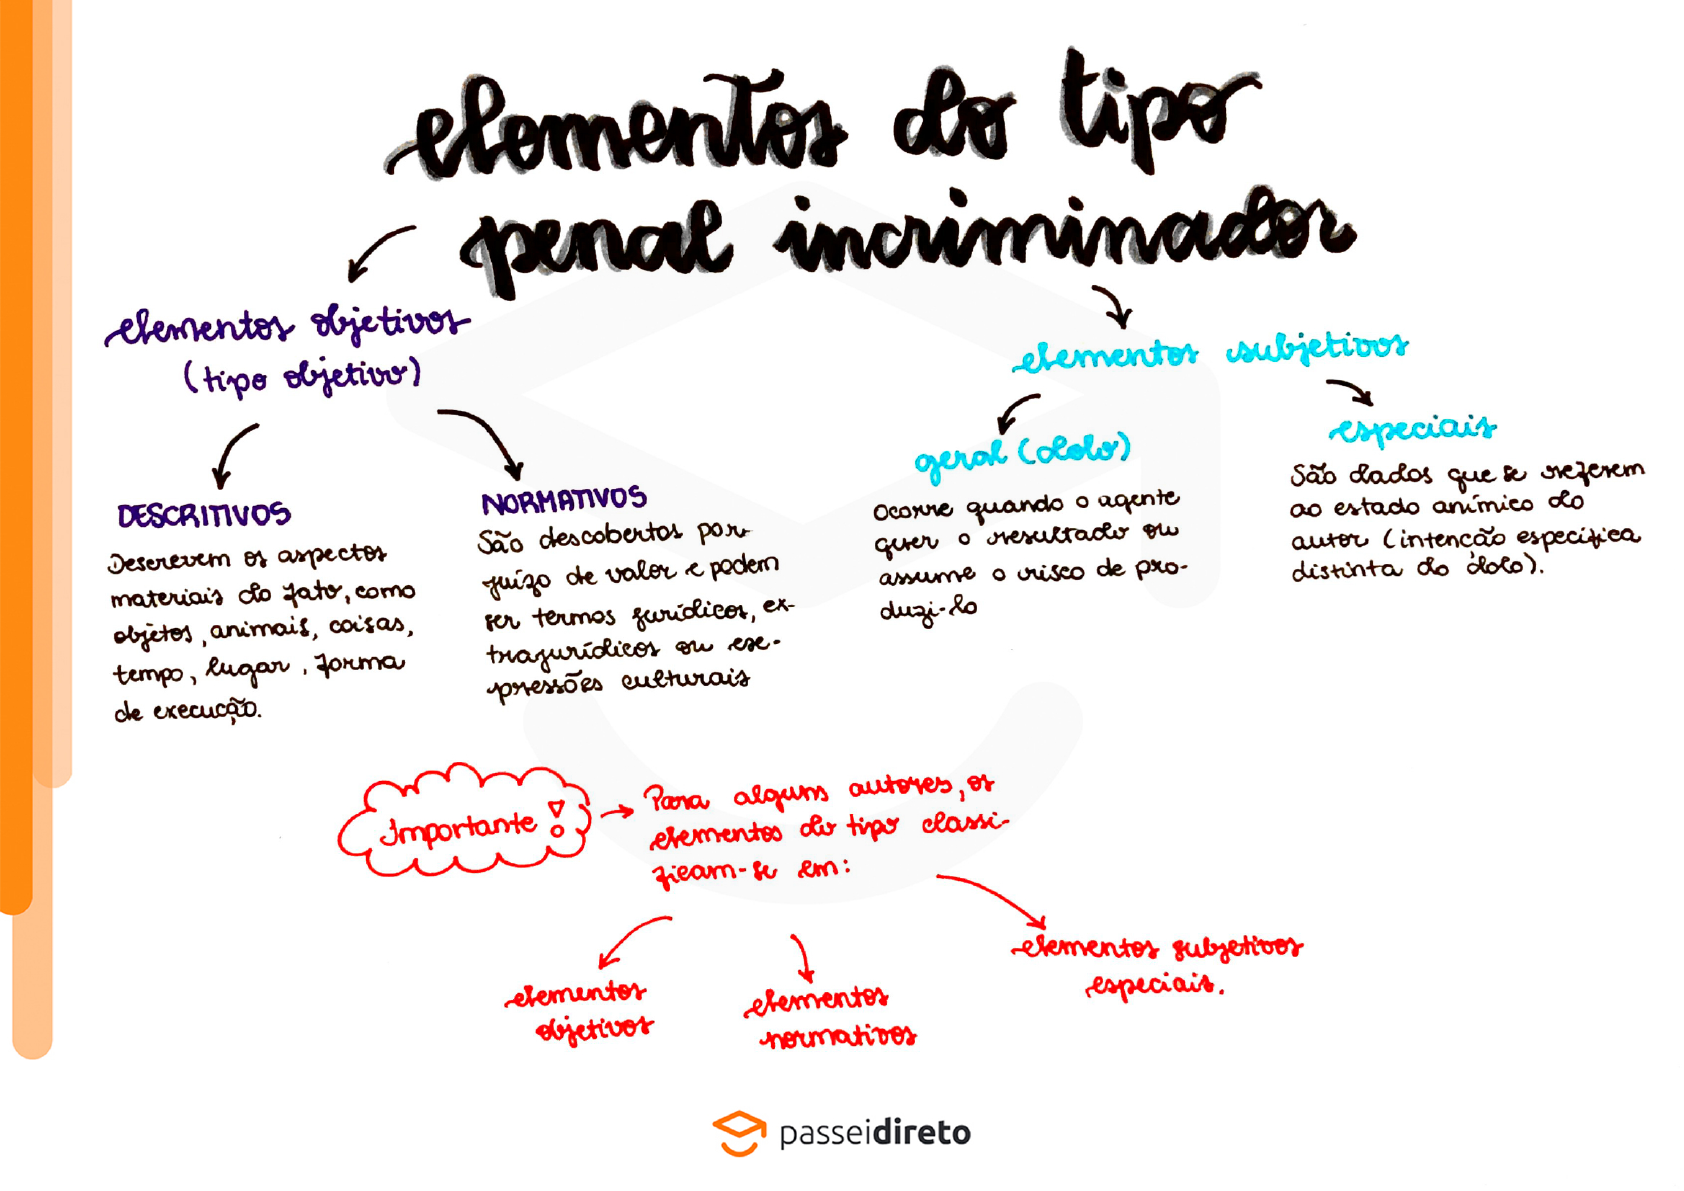 elementos do tipo
penal incriminador
elementos objetivos
(tipo objetivo)
DESCRITIVOS
Descrevem os aspectos
materiais do fato, como
objetos, animais, coisas,
tempo, lugar, forma
de execução.
NORMATIVOS
São descobertos por
juízo de valor e podem
ser termos jurídicos, ex-
trajurídicos ou ex-
pressões culturais
elementos subjetivos
geral (dolo)
Ocorre quando o agente
quer o resultado ou
assume o risco de pro-
duzi-lo
especiais
São dados que se referem
ao estado anímico do
autor (intenção específica
distinta do dolo).
Importante !
Para alguns autores, os
elementos do tipo classi-
ficam-se em:
elementos
objetivos
elementos
normativos
elementos subjetivos
especiais.
passeidireto